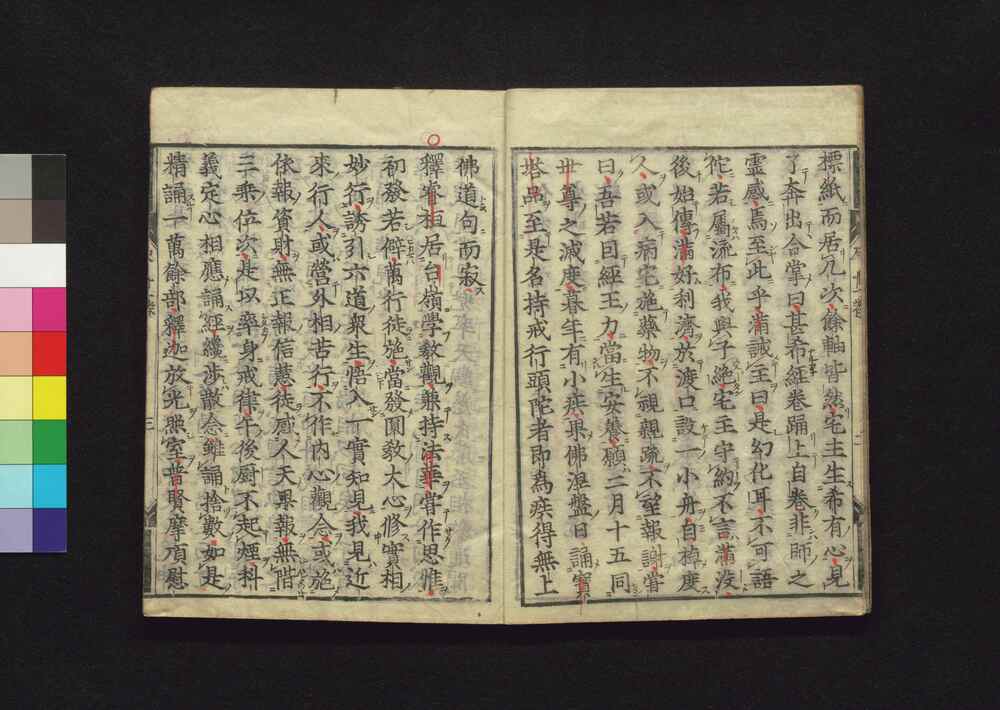 標紙而居几次餘軸皆然宅主生希有心見
了奔出合掌曰甚希經卷踊上自卷非師之
靈感焉至此乎滿誡主曰是幻化耳不可語
佗若屬流布我與子絶宅主守約不言滿没
後始傳滿好利濟於渡口設一小舟自棹度
人或入病宅施藥物不視親疏不望報謝甞
曰吾若因經王力當生安養願二月十五同
世尊之滅度暮年有小疾果佛涅盤日誦寳
塔品至是名持戒行頭陀者即爲疾得無上
佛道句而寂
釋睿桓居台嶺學教觀兼持法華甞作思惟
初發若僻萬行徒施當發圓教大心修實相
妙行誘引六道衆生悟入一實知見我見近
來行人或營外相苦行不作内心觀念或施
依報資財無正報信慧徒感人天果報無階
三乘位次是以率身戒律午後厨不起煙科
義定心相應誦經纔涉散念雖誦捨數如是
精誦一萬餘部釋迦放光照室普賢摩頂慰